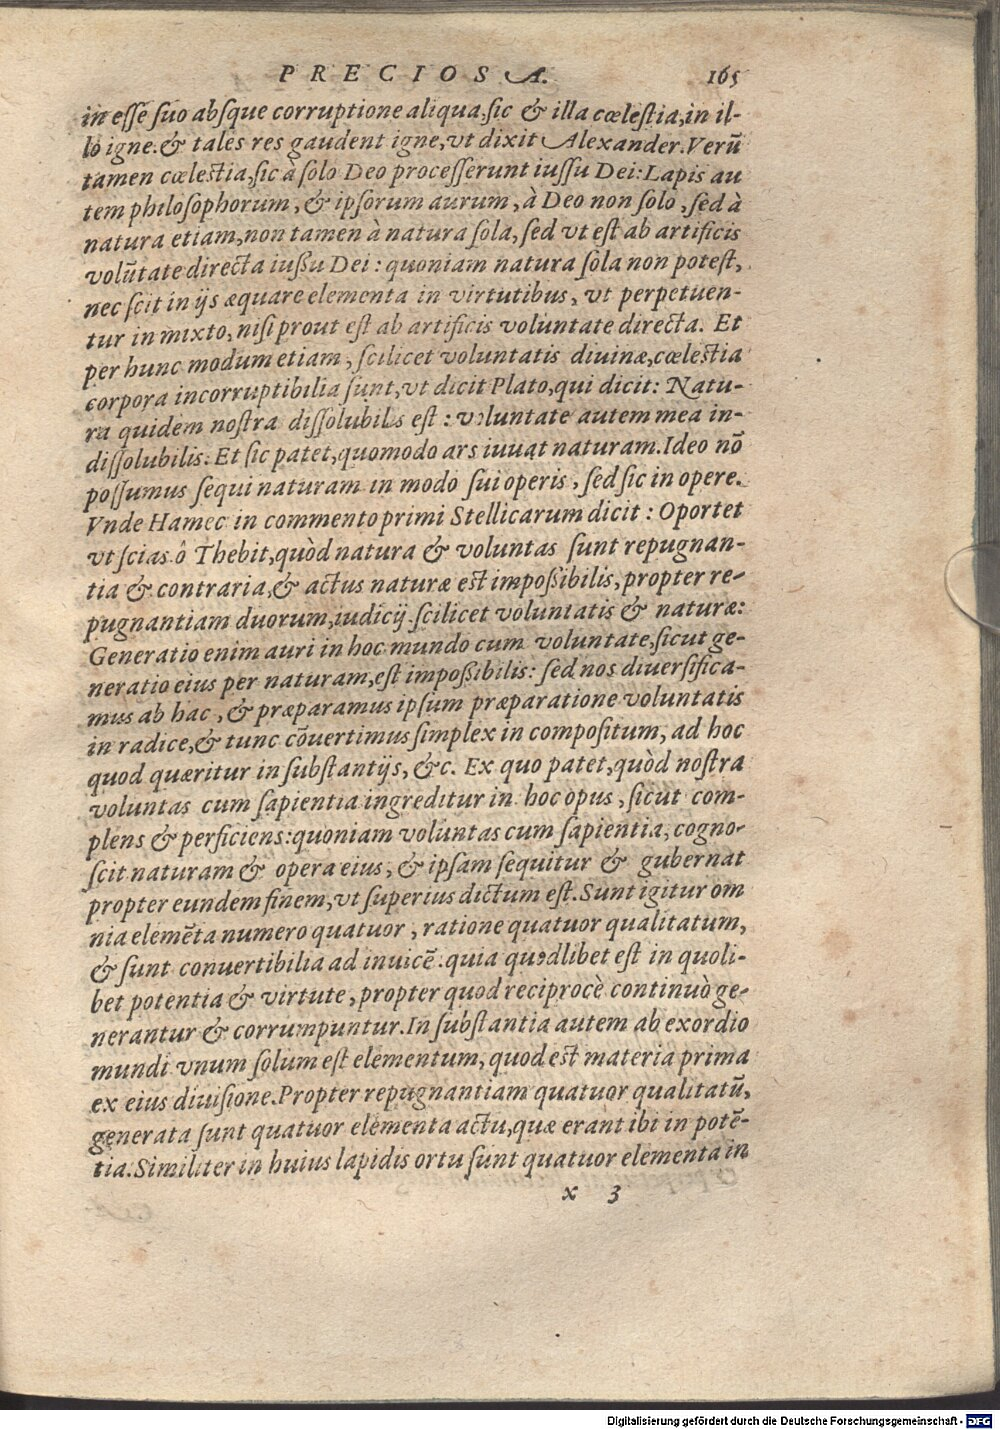 PRECIOSA. 165
in esse suo absque corruptione aliqua, sic & illa cœlestia, in il-
lo igne. & tales res gaudent igne, vt dixit Alexander. Verū
tamen cœlestia, sic à solo Deo processerunt iussu Dei: Lapis au
tem philosophorum, & ipsorum aurum, à Deo non solo, sed à
natura etiam, non tamen à natura sola, sed vt est ab artificis
volūtate directa iussu Dei: quoniam natura sola non potest,
nec scit in ijs æquare elementa in virtutibus, vt perpetuen-
tur in mixto, nisi prout est ab artificis voluntate directa. Et
per hunc modum etiam, scilicet voluntatis diuinæ, cœlestia
corpora incorruptibilia sunt, vt dicit Plato, qui dicit: Natu-
ra quidem nostra dissolubilis est: voluntate autem mea in-
dissolubilis. Et sic patet, quomodo ars iuuat naturam. Ideo nō
possumus sequi naturam in modo sui operis, sed sic in opere.
Vnde Hamec in commento primi Stellicarum dicit: Oportet
vt scias ô Thebit, quòd natura & voluntas sunt repugnan-
tia & contraria, & actus naturæ est impossibilis, propter re-
pugnantiam duorum, iudicij scilicet voluntatis & naturæ:
Generatio enim auri in hoc mundo cum voluntate, sicut ge-
neratio eius per naturam, est impossibilis: sed nos diuersifica-
mus ab hac, & præparamus ipsum præparatione voluntatis
in radice, & tunc cōuertimus simplex in compositum, ad hoc
quod quæritur in substantijs, &c. Ex quo patet, quòd nostra
voluntas cum sapientia ingreditur in hoc opus, sicut com-
plens & perficiens: quoniam voluntas cum sapientia, cogno-
scit naturam & opera eius, & ipsam sequitur & gubernat
propter eundem finem, vt superius dictum est. Sunt igitur om
nia elemēta numero quatuor, ratione quatuor qualitatum,
& sunt conuertibilia ad inuicē. quia quodlibet est in quoli-
bet potentia & virtute, propter quod reciprocè continuò ge-
nerantur & corrumpuntur. In substantia autem ab exordio
mundi vnum solum est elementum, quod est materia prima
ex eius diuisione. Propter repugnantiam quatuor qualitatū,
generata sunt quatuor elementa actu, quæ erant ibi in potē-
tia. Similiter in huius lapidis ortu sunt quatuor elementa in
x 3
Digitalisierung gefördert durch die Deutsche Forschungsgemeinschaft - DFG